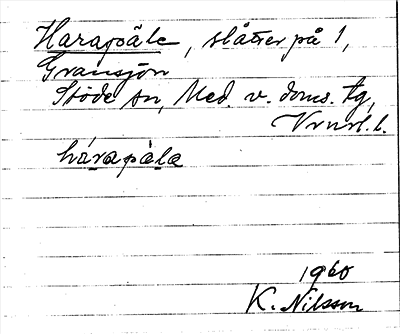 Harapåle, slåtter på 1,
Gransjön
Stöde sn, Med. v. doms. tg,
Vrnrl. l.
hárapàla
1960
K. Nilsson